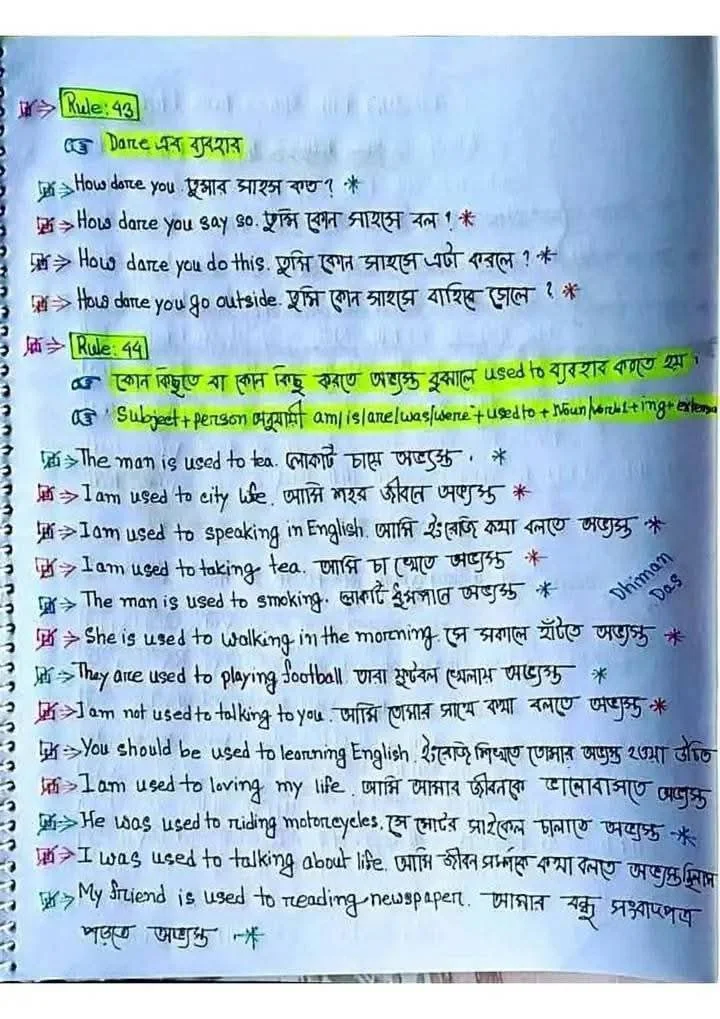 Rule: 43
Dare এর ব্যবহার
How dare you তুমার সাহস কত? *
How dare you say so. তুমি কোন সাহসে বল? *
How dare you do this. তুমি কোন সাহসে এটা করলে? *
How dare you go outside. তুমি কোন সাহসে বাহিরে গেলে? *
Rule: 44
কোন কিছুতে বা কোন কিছু করতে অভ্যস্ত বুঝালে used to ব্যবহার করতে হয়।
Subject + person অনুযায়ী am/is/are/was/were + used to + Noun/verb1 + ing + extension
The man is used to tea. লোকটি চায়ে অভ্যস্ত। *
I am used to city life. আমি শহর জীবনে অভ্যস্ত *
I am used to speaking in English. আমি ইংরেজি কথা বলতে অভ্যস্ত *
I am used to taking tea. আমি চা খেতে অভ্যস্ত *
The man is used to smoking. লোকটি ধুমপানে অভ্যস্ত *
Dhiman Das
She is used to walking in the morning. সে সকালে হাঁটতে অভ্যস্ত *
They are used to playing football. তারা ফুটবল খেলায় অভ্যস্ত *
I am not used to talking to you. আমি তোমার সাথে কথা বলতে অভ্যস্ত *
You should be used to learning English. ইংরেজি শিখতে তোমার অভ্যস্ত হওয়া উচিত
I am used to loving my life. আমি আমার জীবনকে ভালোবাসতে অভ্যস্ত
He was used to riding motorcycles. সে মোটর সাইকেল চালাতে অভ্যস্ত *
I was used to talking about life. আমি জীবন সম্পর্কে কথা বলতে অভ্যস্ত ছিলাম
My friend is used to reading newspaper. আমার বন্ধু সংবাদপত্র
পড়তে অভ্যস্ত *